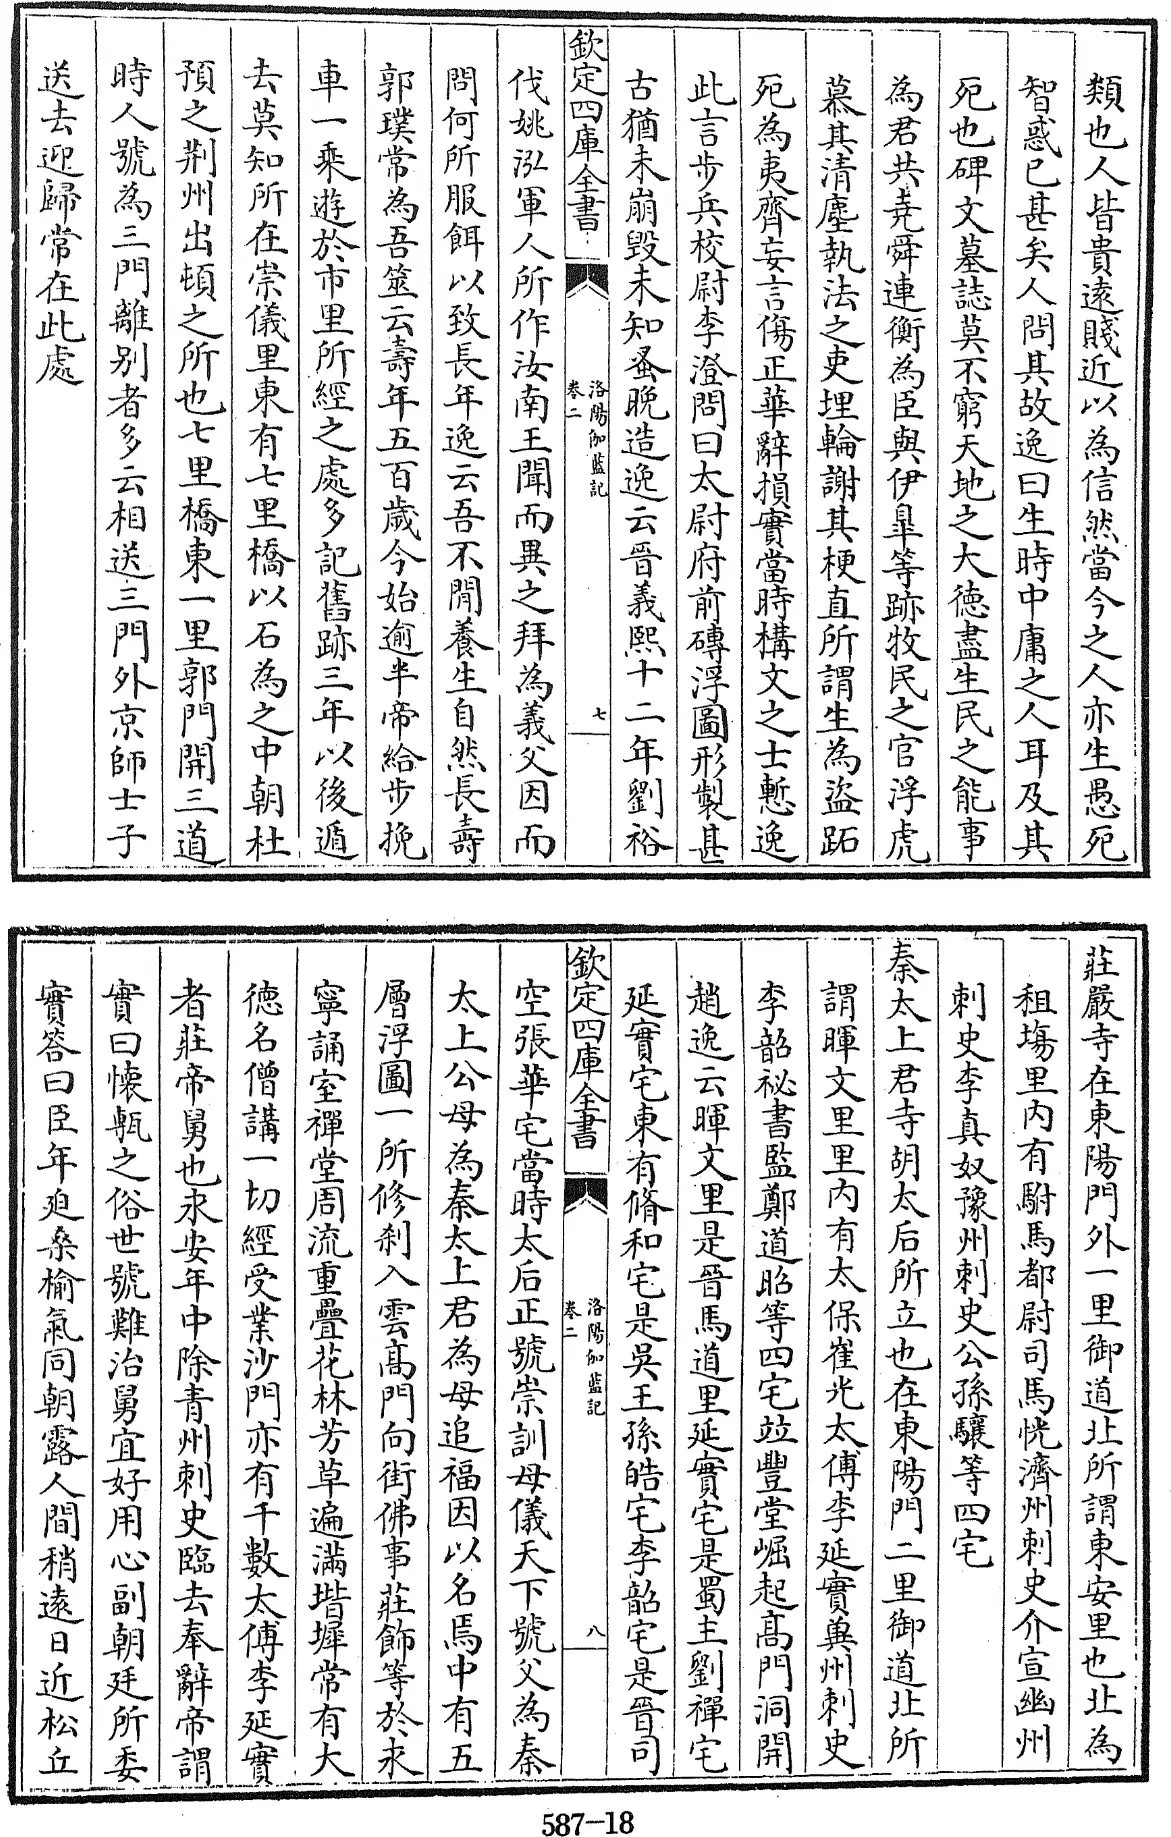 類也人皆貴遠賤近以為信然當今之人亦生愚死
智惑已甚矣人問其故逸曰生時中庸之人耳及其
死也碑文墓誌莫不窮天地之大徳盡生民之能事
為君共堯舜連衡為臣與伊臯等跡牧民之官浮虎
慕其清塵執法之吏埋輪謝其梗直所謂生為盜跖
死為夷齊妄言傷正華辭損實當時構文之士慙逸
此言步兵校尉李澄問曰太尉府前磚浮圖形製甚
古猶未崩毀未知蚤晚造逸云晉義熙十二年劉裕
欽定四庫全書
洛陽伽藍記
卷二
七
伐姚泓軍人所作汝南王聞而異之拜為義父因而
問何所服餌以致長年逸云吾不閒養生自然長壽
郭璞常為吾筮云壽年五百歲今始逾半帝給步挽
車一乘遊於市里所經之處多記舊跡三年以後遁
去莫知所在崇儀里東有七里橋以石為之中朝杜
預之荆州出頓之所也七里橋東一里郭門開三道
時人號為三門離別者多云相送三門外京師士子
送去迎歸常在此處
莊嚴寺在東陽門外一里御道北所謂東安里也北為
租塲里内有駙馬都尉司馬恍濟州刺史介宣幽州
刺史李真奴豫州刺史公孫驤等四宅
秦太上君寺胡太后所立也在東陽門二里御道北所
謂暉文里里内有太保崔光太傅李延實冀州刺史
李韶祕書監鄭道昭等四宅竝豐堂崛起髙門洞開
趙逸云暉文里是晉馬道里延實宅是蜀主劉禪宅
延實宅東有脩和宅是吳王孫皓宅李韶宅是晉司
欽定四庫全書
洛陽伽藍記
卷二
八
空張華宅當時太后正號崇訓母儀天下號父為秦
太上公母為秦太上君為母追福因以名焉中有五
層浮圖一所修刹入雲髙門向街佛事莊飾等於永
寧誦室禪堂周流重疊花林芳草遍滿堦墀常有大
徳名僧講一切經受業沙門亦有千數太傅李延實
者莊帝舅也永安年中除青州刺史臨去奉辭帝謂
實曰懐甎之俗世號難治舅宜好用心副朝廷所委
實答曰臣年迫桑榆氣同朝露人間稍遠日近松丘
587-18